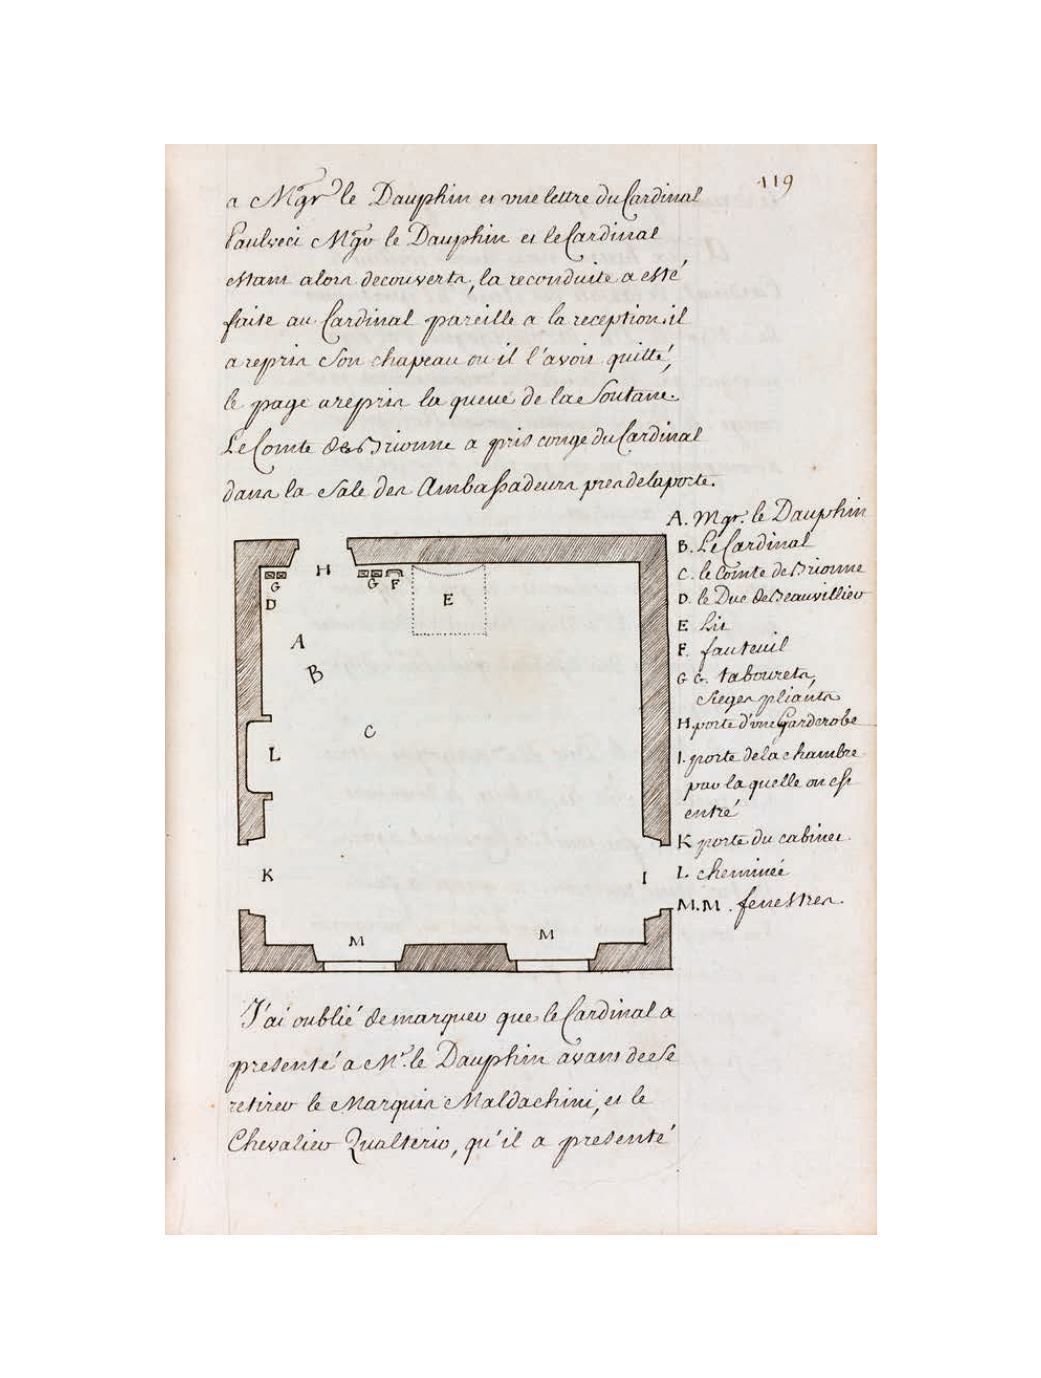 119
a Mgr le Dauphin et une lettre du Cardinal
Paulucci Mgr le Dauphin et le Cardinal
estans alors decouverts, la reconduite a esté
faite au Cardinal pareille a la reception, il
a repris son chapeau ou il l'avoit quitté,
le page a repris la queue de la Soutane.
Le Comte de Brionne a pris congé du Cardinal
dans la Sale des Ambassadeurs pres de la porte.
A. Mgr. le Dauphin
B. Le Cardinal
C. le Comte de Brionne
D. le Duc de Beauvillier
E Lit
F. fauteuil
G G. tabourets,
sieges pliants
H. porte d'une Garderobe
I. porte de la chambre
par la quelle on est
entré
K porte du cabinet
L. cheminée
M.M. fenestres.
H
G
G F
D
E
A
B
C
L
K
I
M
M
J'ai oublié de marquer que le Cardinal a
presenté a Mr. le Dauphin avant de se
retirer le Marquis Maldachini, et le
Chevalier Qualterio, qu'il a presenté